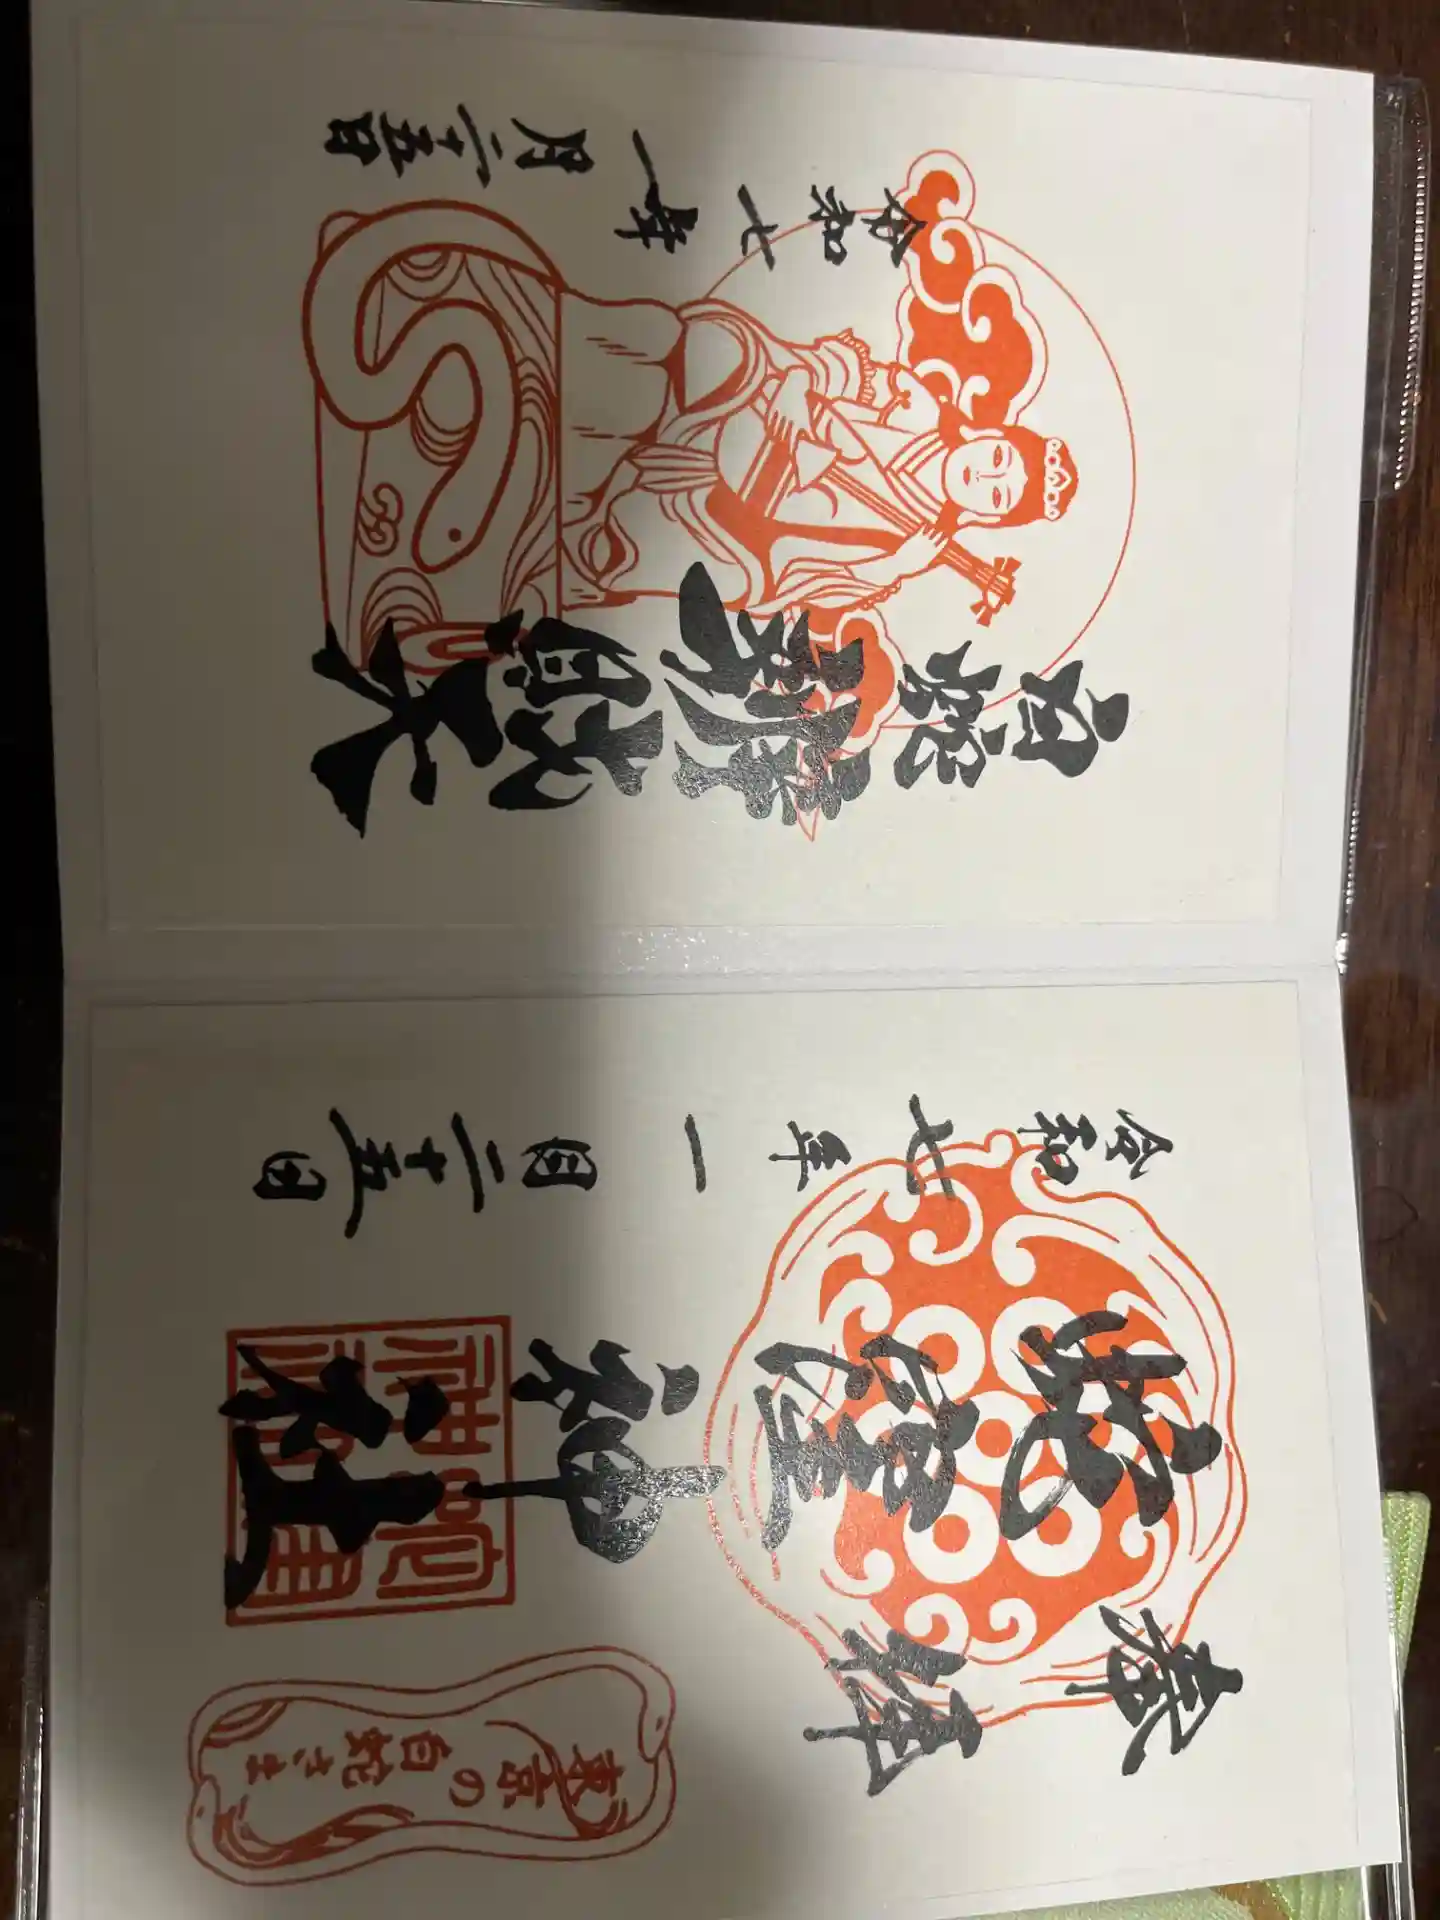 奉拝
蛇窪神社
令和七年一月二十五日
蛇窪
神社
東京の
白蛇さま
白蛇辨財天
令和七年
一月二十五日